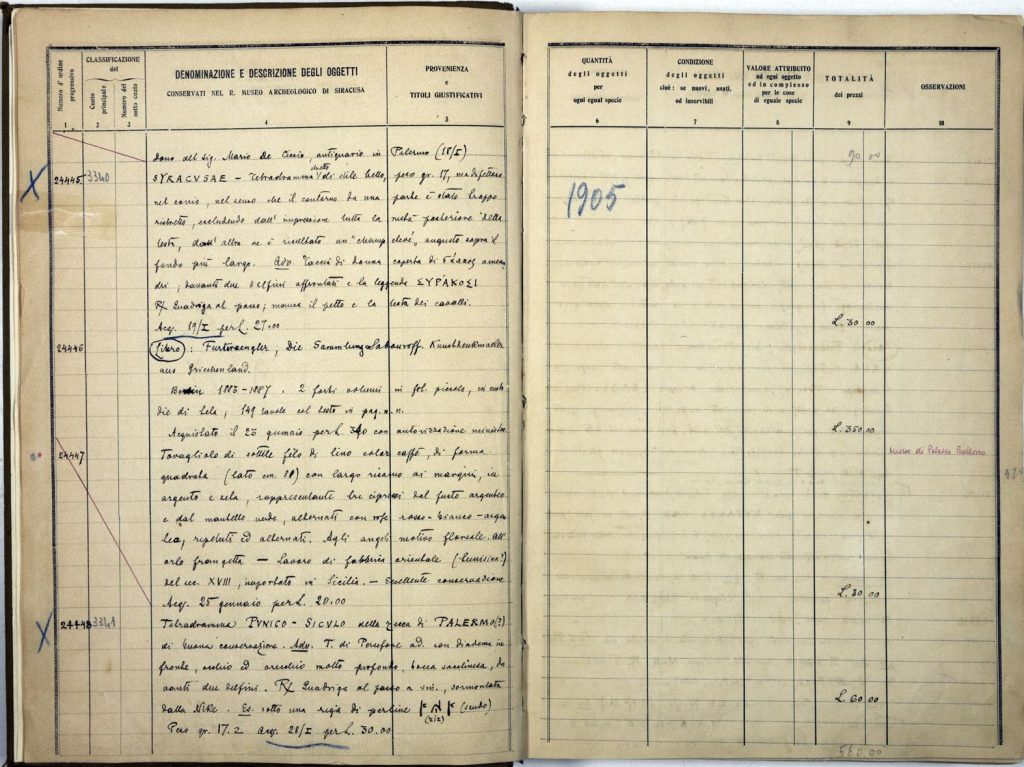 Numero d'ordine progressivo
CLASSIFICAZIONE del
Conto principale
Numero del sotto conto
DENOMINAZIONE E DESCRIZIONE DEGLI OGGETTI
CONSERVATI NEL R. MUSEO ARCHEOLOGICO DI SIRACUSA
PROVENIENZA
e
TITOLI GIUSTIFICATIVI
1 2 3 4 5
Dono del Sig. Mario De Ciccio, antiquario in Palermo (18/I)
24445 3340 SYRACVSAE – Tetradramma di stile bello, peso gr. 17, ma difettoso
nel conio, nel senso che il contorno da una parte è stato troppo
ristretto, escludendo dall' impressione tutta la metà posteriore della
testa, dall' altra ne è risultato un "champ levé", augusto sopra il
fondo più largo. Adv. di donna coperta di
dri; davanti due delfini affrontati e la leggenda ΣΥΡΑΚΟΣΙ
R/ Quadriga al passo; manca il petto e la testa dei cavalli.
Acq. 19/I per L. 27.00
24446 Libro: Furtwaengler, Die Sammlung Sabouroff. Kunstdenkmaeler
aus Griechenland.
Berlin 1883–1887. 2 forti volumi in fol. piccolo, in custo
die di tela; 149 tavole col testo in pag. n. n.
Acquistato il 23 gennaio per L. con autorizzazione ministe.
24447 Tovagliolo di sottile filo di lino color caffè, di forma
quadrata (lato cm. 80) con largo ricamo ai margini, in
argento e seta, rappresentante tre cipressi dal fusto argenteo
e dal mantello verde, alternati con rose rosso-bianco-argen
tea, repetuti ed alternati. Agli angoli motivo floreale. All'
orlo frangetta – Lavoro di fabbrica orientale (tunisina?)
del sec. XVIII, importato in Sicilia. – Eccellente conservazione
Acq. 25 gennaio per L. 20.00
24448 3341 Tetradramma PVNICO-SICVLO della zecca di PALERMO(?)
di buona conservazione. Adv. T. di Persefone ad. con diadema in
fronte, occhio ed orecchio molto profondo, bocca, da
vanti due delfini. R/ Quadriga al passo a, sormontata
dalla Nike. Es. sotto una regia di perline (sic) (scudo)
Peso gr. 17.2 Acq. 28/I per L. 30.00
QUANTITÀ
degli oggetti
per
ogni egual specie
CONDIZIONE
degli oggetti
cioè: se nuovi, usati,
od inservibili
VALORE ATTRIBUITO
ad ogni oggetto
ed in complesso
per le cose
di eguale specie
TOTALITÀ
dei prezzi
OSSERVAZIONI
6 7 8 9 10
90 00
1905
L. 30 00
L. 350.00
Museo di Palazzo Bellomo
L. 30 00
L. 60 00
540.00